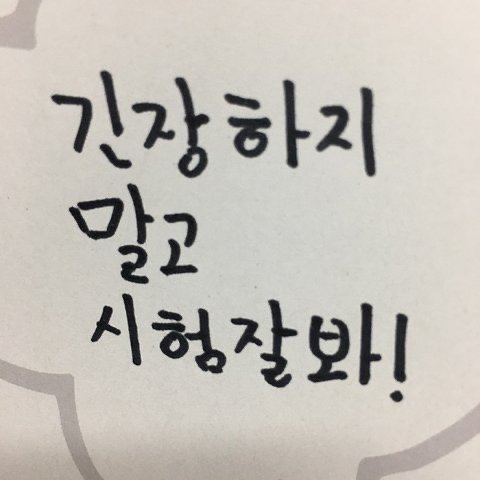 긴장하지
말고
시험잘봐!